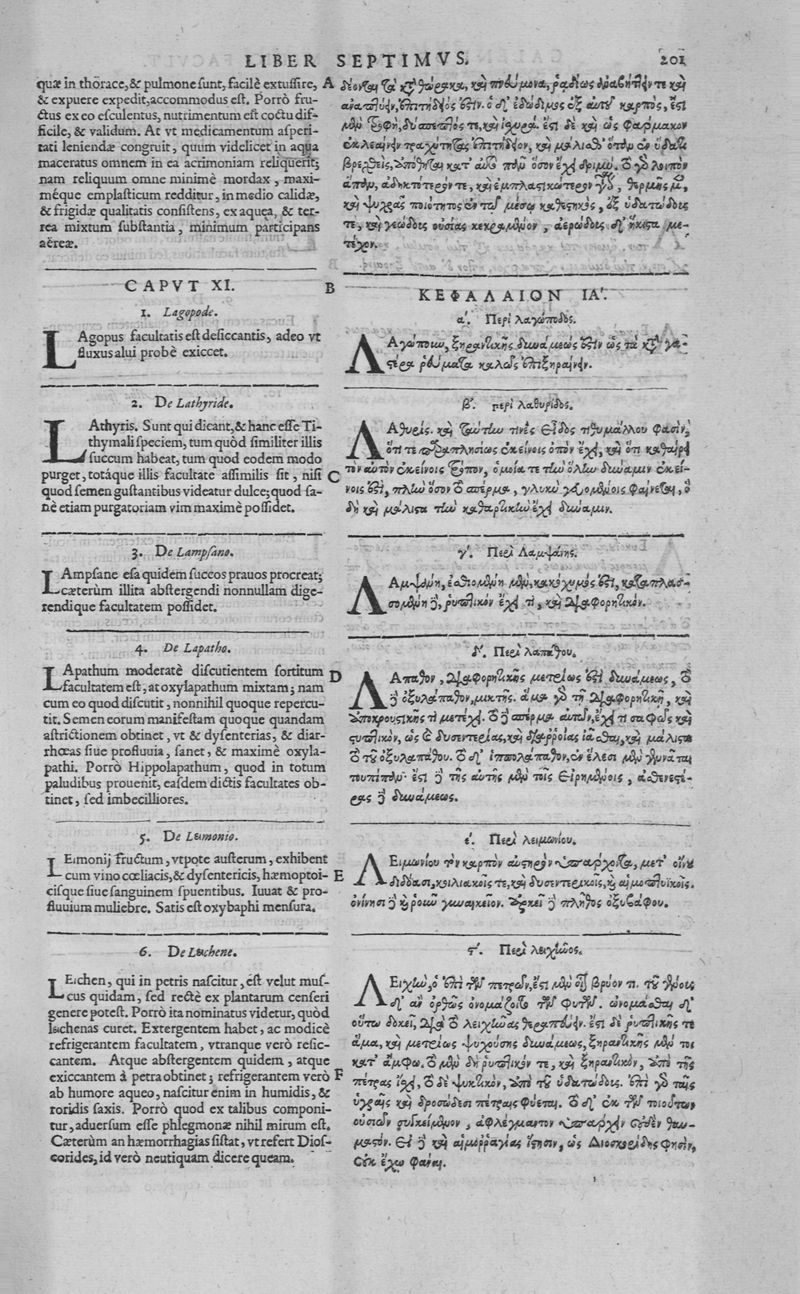 LIBER SEPTIMVS. 201
quæ in thorace, & pulmone sunt, facilè extussire, A
& expuere expedit, accommodus est. Porrò fru-
ctus ex eo esculentus, nutrimentum est coctu dif-
ficile, & validum. At vt medicamentum asperi-
tati leniendæ congruit, quum videlicet in aqua
maceratus omnem in ea acrimoniam reliquerit;
nam reliquum omne minimè mordax, maxi-
méque emplasticum redditur, in medio calidæ,
& frigidæ qualitatis consistens, ex aquea, & ter-
rea mixtum substantia, minimum participans
aëreæ.
CAPVT XI. B
1. Lagopode.
LAgopus facultatis est desiccantis, adeo vt
fluxus alui probè exiccet.
2. De Lathyride.
LAthyris. Sunt qui dicant, & hanc esse Ti-
thymali speciem, tum quòd similiter illis
succum habeat, tum quod eodem modo
purget, totáque illis facultate assimilis sit, nisi C
quod semen gustantibus videatur dulce; quod sa-
nè etiam purgatoriam vim maximè possidet.
3. De Lampsano.
LAmpsane esa quidem succos prauos procreat;
cæterùm illita abstergendi nonnullam dige-
rendique facultatem possidet.
4. De Lapatho.
LApathum moderatè discutientem sortitum D
facultatem est; at oxylapathum mixtam; nam
cum eo quod discutit, nonnihil quoque repercu-
tit. Semen eorum manifestam quoque quandam
astrictionem obtinet, vt & dysenterias, & diar-
rhœas siue profluuia, sanet, & maximè oxyla-
pathi. Porrò Hippolapathum, quod in totum
paludibus prouenit, easdem dictis facultates ob-
tinet, sed imbecilliores.
5. De Leimonio.
LEimonij fructum, vtpote austerum, exhibent
cum vino cœliacis, & dysentericis, hæmoptoi- E
cisque siue sanguinem spuentibus. Iuuat & pro-
fluuium muliebre. Satis est oxybaphi mensura.
6. De Leichene.
LEichen, qui in petris nascitur, est velut mus-
cus quidam, sed rectè ex plantarum censeri
genere potest. Porrò ita nominatus videtur, quòd
leichenas curet. Extergentem habet, ac modicè
refrigerantem facultatem, vtranque verò resic-
cantem. Atque abstergentem quidem, atque
exiccantem à petra obtinet; refrigerantem verò F
ab humore aqueo, nascitur enim in humidis, &
roridis saxis. Porrò quod ex talibus componi-
tur, aduersum esse phlegmonæ nihil mirum est.
Cæterùm an hæmorrhagias sistat, vt refert Dios-
corides, id verò neutiquam dicere queam.
δέονται τὰ κατὰ θώρακα, καὶ πνεύμονα, ῥᾳδίως
ἀναπτύειν, ἐπιτήδειός ἐστιν. ὁ δ' ἐδώδιμος ἐξ αὐτοῦ καρπός, ἔστι
μὲν τροφὴ, δύσπεπτός τε, καὶ ἰσχυρά. ἔστι δὲ καὶ ὡς φάρμακον
ἐκλεαίνειν τραχύτητας ἐπιτήδειον, καὶ μάλισθ' ὅταν ἐν ὕδατι
βρεχθεὶς, ἀπόθηται κατ' αὐτὸ πᾶν ὅσον ἔχει δριμύ. τὸ γὰρ λοιπὸν
ἅπαν, ἀδηκτότερόν τε, καὶ ἐμπλαστικώτερον γίνεται, θερμῆς μὲν,
καὶ ψυχρᾶς ποιότητος ἐν τῷ μέσῳ καθεστηκὸς, ἐξ ὑδατώδους
τε, καὶ γεώδους οὐσίας κεκραμένον, ἀερώδους δ' ἥκιστα με-
τέχον.
ΚΕΦΑΛΑΙΟΝ ΙΑ'.
α'. Περὶ λαγώποδος.
ΛΑγώπους, ξηραντικῆς δυνάμεώς ἐστιν ὡς τὰ κατὰ γα-
στέρα ῥεύματα καλῶς ἐπιξηραίνειν.
β'. περὶ λαθυρίδος.
ΛΑθυρίς. καὶ ταύτην τινὲς εἶδος τιθυμάλλου φασὶν,
ὅτι τε παραπλησίως ἐκείνοις ὀπὸν ἔχει, καὶ ὅτι καθαίρει
τὸν αὐτὸν ἐκείνοις τρόπον, ὁμοία τε τὴν ὅλην δύναμιν ἐκεί-
νοις ἐστὶ, πλὴν ὅσον τὸ σπέρμα, γλυκὺ γευομένοις φαίνεται, ὃ
δὴ καὶ μάλιστα τὴν καθαρτικὴν ἔχει δύναμιν.
γ'. Περὶ Λαμψάνης.
ΛΑμψάνη, ἐσθιομένη μὲν, κακόχυμός ἐστι, καταπλασ-
σομένη δὲ, ῥυπτικόν ἔχει τι, καὶ διαφορητικόν.
δ'. Περὶ λαπάθου.
ΛΑπαθον, διαφορητικῆς μετρίως ἐστὶ δυνάμεως, τὸ
δὲ ὀξυλάπαθον, μικτῆς. ἅμα γὰρ τῇ διαφορητικῇ, καὶ
ἀποκρουστικῆς τι μετέχει. τὸ δὲ σπέρμα αὐτῶν, ἔχει τι σαφῶς καὶ
στυπτικὸν, ὡς καὶ δυσεντερίας, καὶ διαρροίας ἰᾶσθαι, καὶ μάλιστα
τὸ τοῦ ὀξυλαπάθου. τὸ δ' ἱππολάπαθον, ἐν ἕλεσι μὲν γεννᾶται
τουπίπαν· ἔστι δὲ τῆς αὐτῆς μὲν τοῖς εἰρημένοις, ἀσθενεστέ-
ρας δὲ δυνάμεως.
ε'. Περὶ λειμωνίου.
ΛΕιμωνίου τὸν καρπὸν αὐστηρὸν ὑπάρχοντα, μετ' οἴνου
διδόασι, κοιλιακοῖς τε, καὶ δυσεντερικοῖς, καὶ αἱμοπτυϊκοῖς.
ὀνίνησι δὲ καὶ ῥοῦν γυναικεῖον. ἀρκεῖ δὲ πλῆθος ὀξυβάφου.
ϛ'. Περὶ λειχῆνος.
ΛΕιχὴν, ὁ ἐπὶ τῶν πετρῶν, ἔστι μὲν οἷον βρύον τι. τοῦ γένους
δ' ἂν ὀρθῶς ὀνομάζοιτο τῶν φυτῶν. ὠνομάσθαι δ'
οὕτω δοκεῖ, διὰ τὸ λειχῆνας θεραπεύειν. ἔστι δὲ ῥυπτικῆς τε
ἅμα, καὶ μετρίως ψυχούσης δυνάμεως, ξηραντικῆς μέν τοι
κατ' ἄμφω. τὸ μὲν δὴ ῥυπτικόν τε, καὶ ξηραντικὸν, ἀπὸ τῆς
πέτρας ἴσχει, τὸ δὲ ψυκτικὸν, ἀπὸ τοῦ ὑδατώδους. ἐπὶ γὰρ ταῖς
ὑγραῖς καὶ δροσώδεσι πέτραις φύεται. τὸ δ' ἐκ τῶν τοιούτων
οὐσιῶν συγκείμενον, ἀφλέγμαντον ὑπάρχειν οὐδὲν θαυ-
μαστόν. Εἰ δὲ καὶ αἱμορῥαγίας ἵστησιν, ὡς Διοσκορίδης φησὶν,
οὐκ ἔχω φάναι.